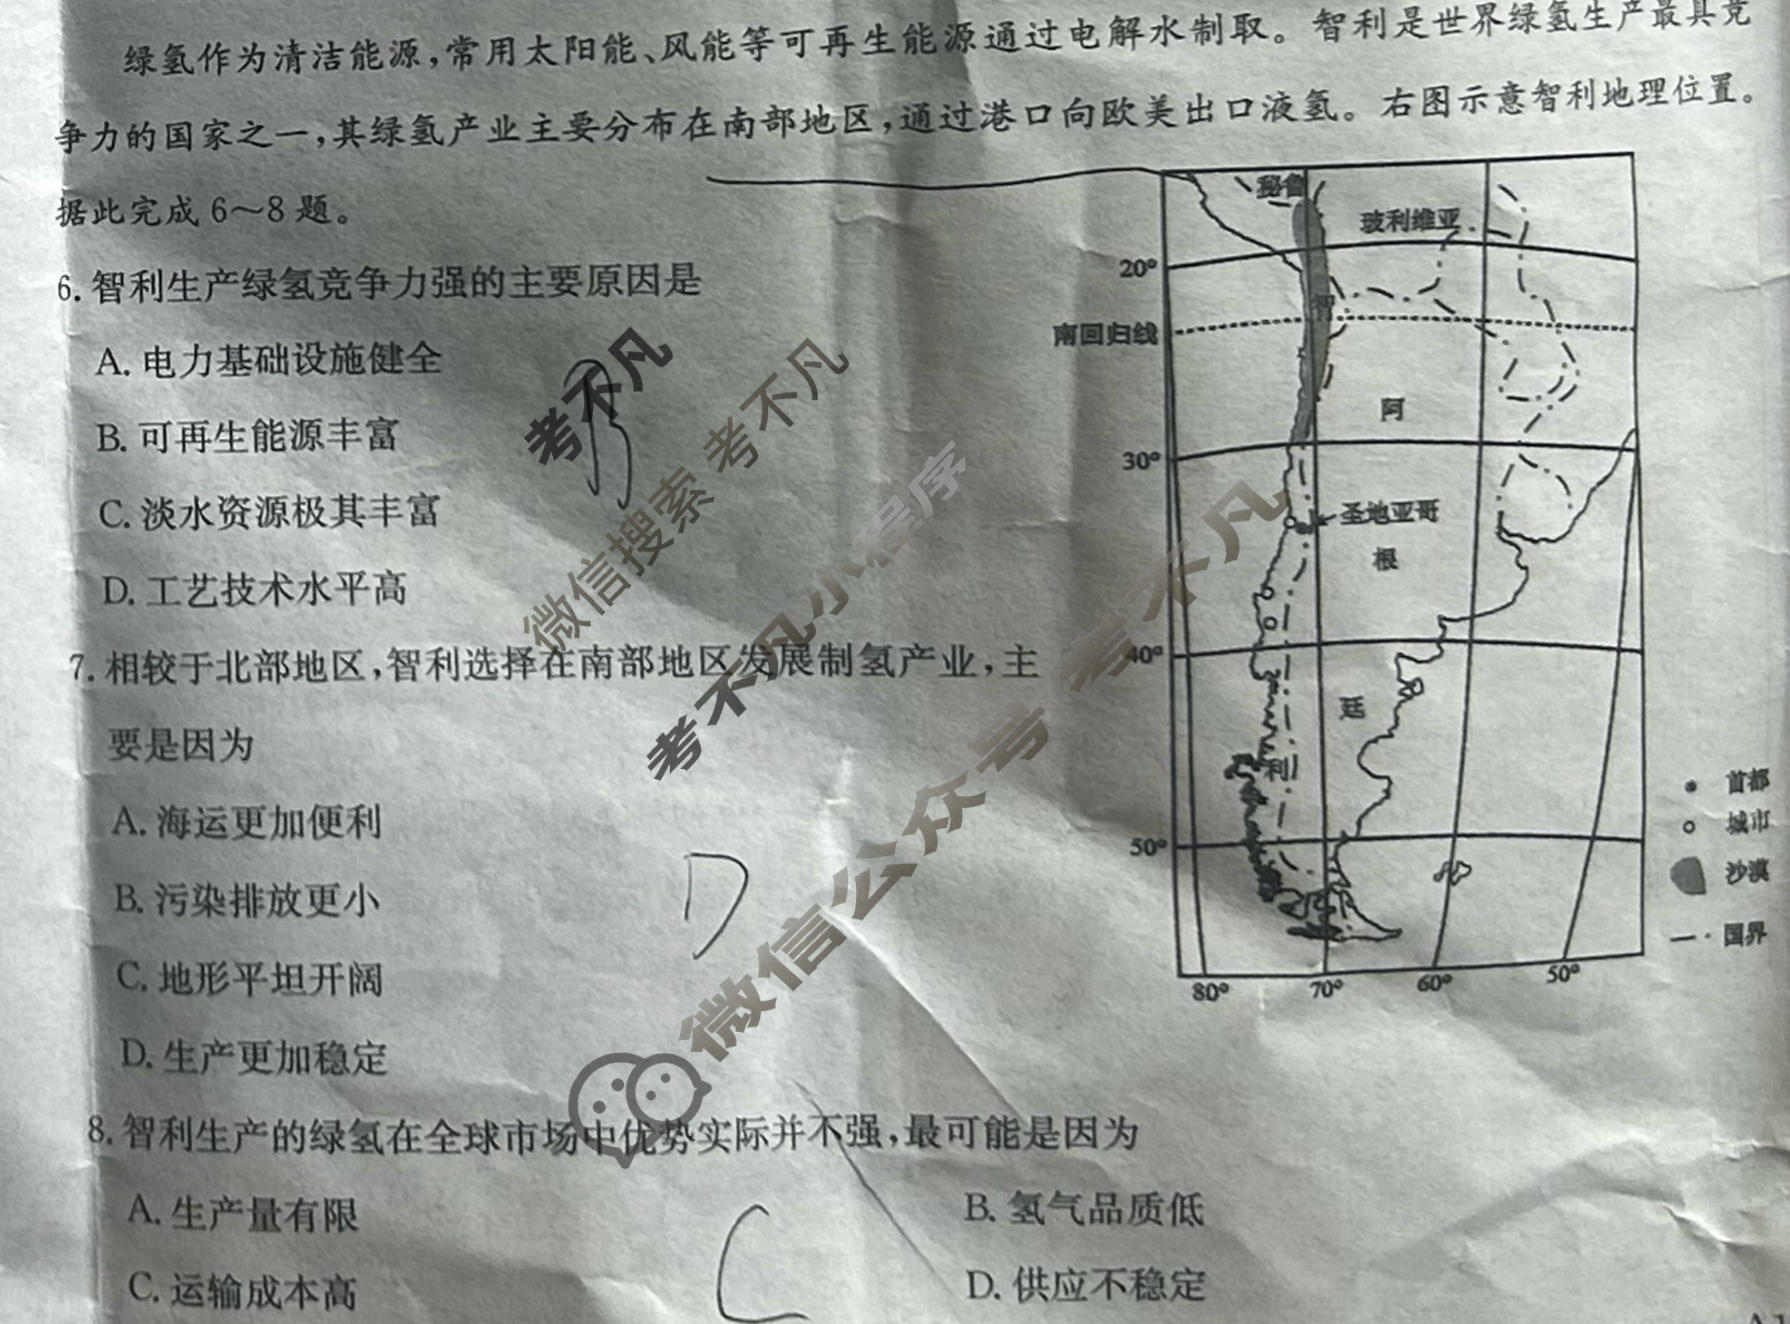 绿氢作为清洁能源,常用太阳能、风能等可再生能源通过电解水制取。智利是世界绿氢生产最具竞
争力的国家之一,其绿氢产业主要分布在南部地区,通过港口向欧美出口液氢。右图示意智利地理位置。
据此完成6~8题。
6. 智利生产绿氢竞争力强的主要原因是
A. 电力基础设施健全
B. 可再生能源丰富
C. 淡水资源极其丰富
D. 工艺技术水平高
B
7. 相较于北部地区,智利选择在南部地区发展制氢产业,主
要是因为
A. 海运更加便利
B. 污染排放更小
C. 地形平坦开阔
D. 生产更加稳定
D
8. 智利生产的绿氢在全球市场中优势实际并不强,最可能是因为
A. 生产量有限
B. 氢气品质低
C. 运输成本高
D. 供应不稳定
C
秘鲁
玻利维亚
20°
智
南回归线
阿
30°
圣地亚哥
根
40°
廷
利
50°
80°
70°
60°
50°
首都
城市
沙漠
国界
考不凡
微信搜索 考不凡
考不凡小程序
微信公众号 考不凡